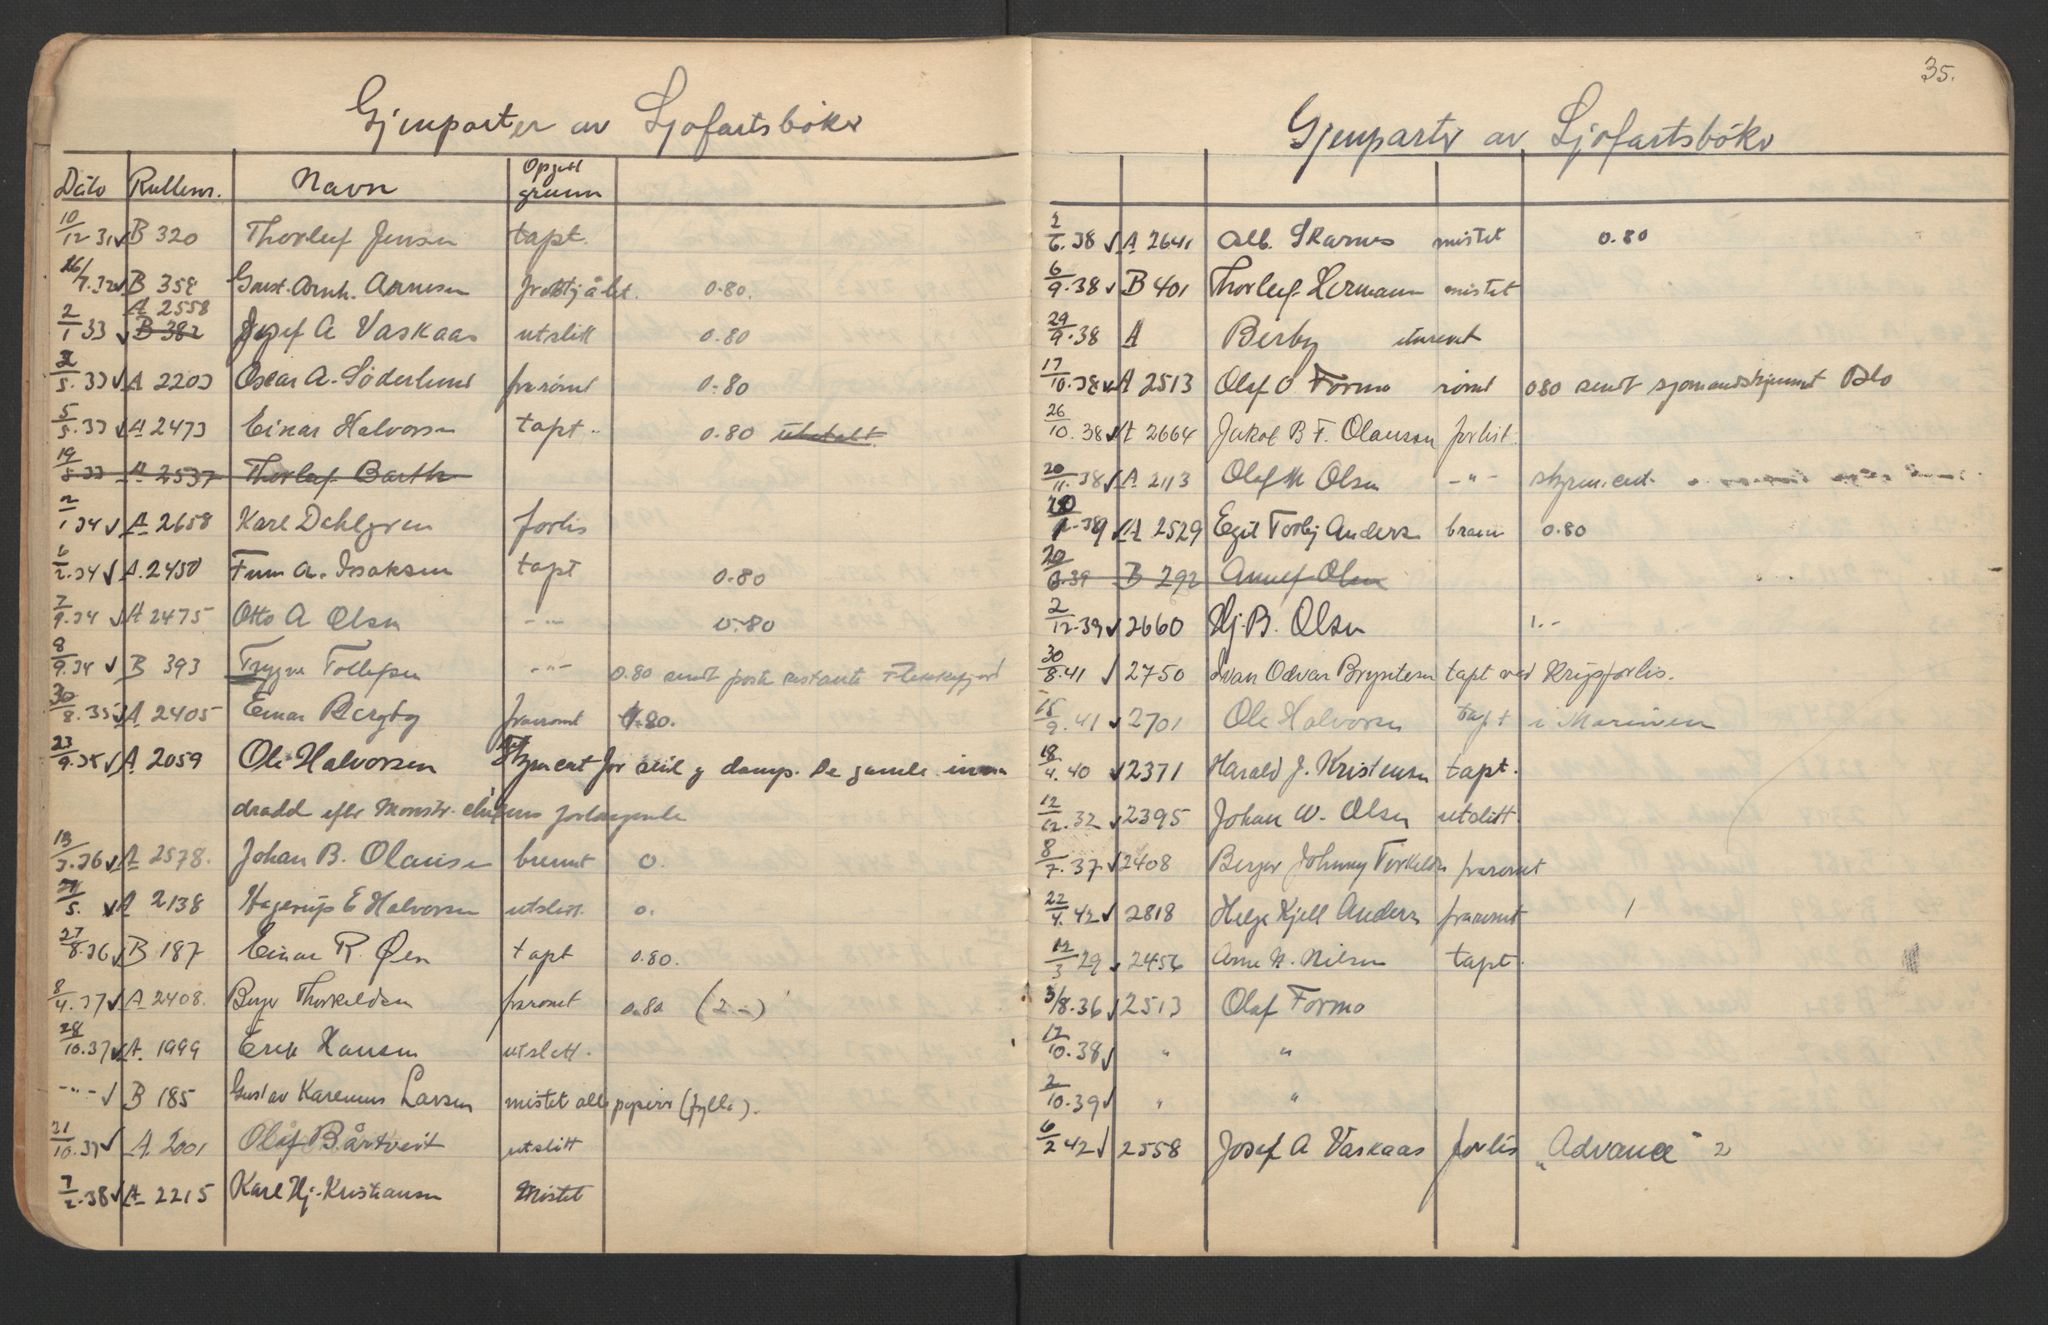 Gjenparter av Sjøfartsbøker
Dato Rullenr. Navn Opgitt grunn
10/12 31 B 320 Thorleif Jensen tapt.
26/7.32 B 358 Gust. Arnh. Arnesen frastjålet. 0.80.
A 2558
2/1 33 B 382 Josef A Vaskaas utslitt 0.80
2/5.33 A 2203 Oscar A. Söderlund frarømt 0.80
5/5.33 A 2473 Einar Halvorsen tapt. 0.80 utbetalt
19/5 33 A 2537 Thorleif Barth
2/1 34 A 2658 Karl Dahlgren forlis
6/2.34 A. 2450 Finn A. Isaksen tapt 0.80
7/9.34 A 2475 Otto A Olsen -"- 0.80
8/9.34 B 393 Trygve Tollefsen -"- 0.80 sendt poste restante Flekkefjord
30/8.35 A 2405 Einar Bergby frarømt 0.80.
23/9.35 A 2059 Ole Halvorsen Styrmcert for seil og damp. De gamle inn
dradd efter Mønstr. chefens forlangende
13/3.36 A 2578. Johan B. Olausen brent 0.
27/5. A 2138 Hagerup E Halvorsen utslitt. 0.
27/8.36 B 187 Einar R. Øen tapt 0.80.
8/4.37 A 2408. Berger Thorkildsen frarømt 0.80 (2.-)
28/10.37 A. 1999 Erik Hansen utslitt.
-"- B 185 Gustav Karenius Larsen mistet alle papirer (fylla).
21/10.37 A 2001 Olaf Bårtveit utslitt
7/2.38 A 2215 Karl Hj. Kristiansen Mistet
35.
Gjenparter av Sjøfartsbøker
2/6.38 A 2641 Alb. Skarnes mistet 0.80
6/9.38 B 401 Thorleif Hermann mistet
29/9.38 A Berby
17/10.38 A 2513 Olaf O. Formo rømt 0.80 sendt sjømandskjemmet Oslo
26/10.38 A 2664 Jakob B F. Olausen forlist.
20/11.38 A 2113 Olaf M Olsen -"- styrm. cert.
A 2529 Egil Torbj Anders brann 0.80
20/6.39 B 292 Arnulf Olsen
2/12.39 2660 Hj. B. Olsen 1.-
30/8.41 2750 Ivan Odvar Bryntesen tapt ved Krigsforlis.
15/9.41 2701 Ole Halvorsen tapt i Marinen
18/4.40 2371 Harald J. Kristensen tapt.
12/12.32 2395 Johan W. Olsen utslitt.
8/7.37 2408 Berger Johnny Torkildsen frarømt
22/4.42 2818 Helge Kjell Anders frarømt 1
12/3 29 2456 Arne N. Nilsen tapt.
3/8.36 2513 Olaf Formo
17/10.38 " "
2/10.39 " "
6/2 42 2558 Josef A Vaskaas forlis „Advance" 2